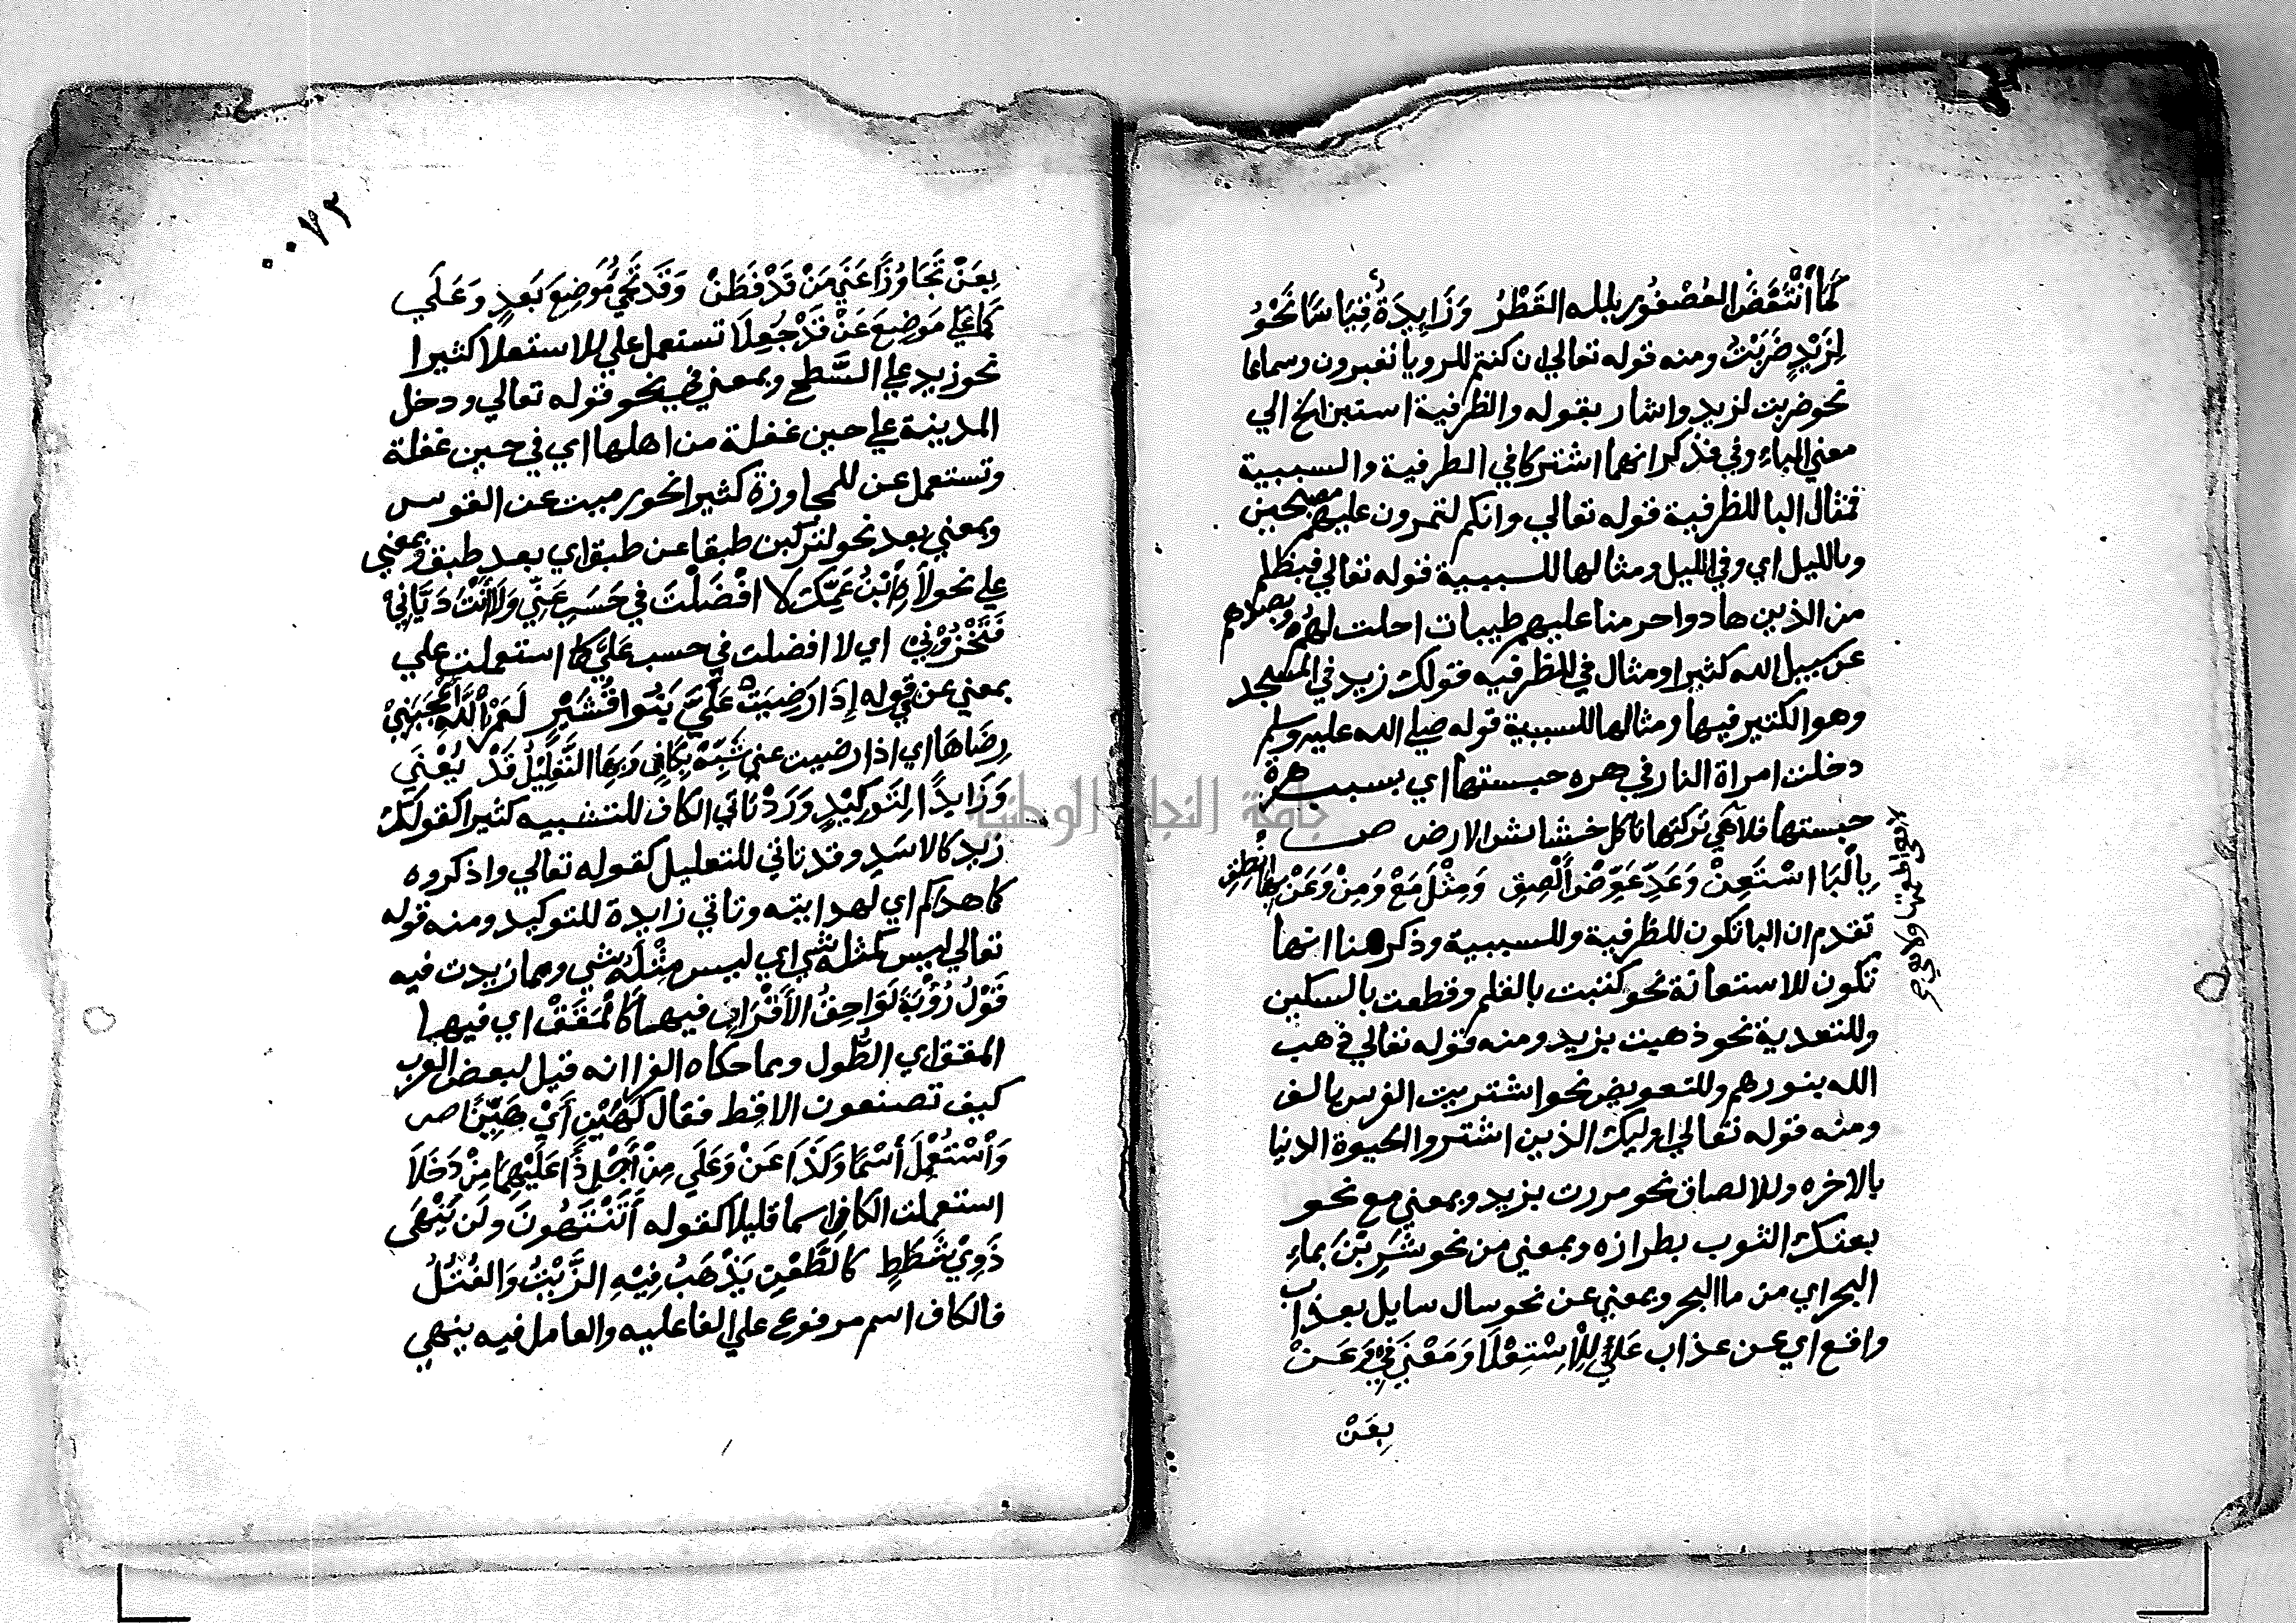 كَمَا أنْتَفَضَ العُصْفُور بلله القَطْرُ وَزَايِدَةُ قِيَاسًا نَحْوُ
لِزَيْدٍ ضَرَبْتُ ومنه قوله تعالي ان كنتم للرويا تعبرون وسماعا
نحو ضربت لزيد واشار بقوله والظرفية استبن الخ الي
معني الباء وفي فذكر انهما اشتركا في الظرفية والسببية
فمثال البا للظرفية قوله تعالي وانكم لتمرون عليهم مصبحين
وبالليل اي وفي الليل ومثالها للسببية قوله تعالي فبظلم
من الذين هادوا حرمنا عليهم طيبات احلت لهم وبصدهم
عن سبيل الله كثيرا ومثال في للظرفيه قولك زيد في المسجد
وهو الكثير فيها ومثالها للسببية قوله صلي الله عليه وسلم
دخلت امراة النار في هره حبستها اي بسبب هرة
حبستها فلا هي تركتها تاكل خشاش الارض ص
بِالْبَا اسْتَعِنْ وَعَدِّ عَوِّضْ أَلْصِقِ وَمِثْلَ مَعْ وَمِنْ وَعَنْ بِهَا انْطِقِ
تقدم ان البا تكون للظرفية وللسببية وذكر هنا انها
تكون للاستعانة نحو كتبت بالقلم وقطعت بالسكين
وللتعدية نحو ذهبت بزيد ومنه قوله تعالي ذهب
الله بنورهم وللتعويض نحو اشتريت الفرس بالف
ومنه قوله تعالي اوليك الذين اشتروا الحيوة الدنيا
بالاخره وللالصاق نحو مررت بزيد وبمعني مع نحو
بعتك الثوب بطرازه وبمعني من نحو شَرِبْنَ بماءِ
البحر اي من ما البحر وبمعني عن نحو سال سايل بعذاب
واقع اي عن عذاب عَلَي لِلْاِسْتِعْلَا وَمَعْنَي فِيْ وَعَنْ
بِعَنْ
٠٠٧٣
بِعَنْ تَجَاوُزًا عَنَي مَنْ قَدْ فَطَنْ وَقَدْ تَجِي مَوْضِعَ بَعْدٍ وَعَلَي
كَمَا عَلَي مَوْضِعَ عَنْ قَدْ جُعِلَا تستعمل علي للاستعلا كثيرا
نحو زيد علي السَّطح وبمعني في نحو قوله تعالي ودخل
المدينة علي حين غفلة من اهلها اي في حين غفلة
وتستعمل عن للمجاوزة كثيرا نحو رميت عن القوس
وبمعني بعد نحو لتركبن طبقا عن طبق اي بعد طبق وبمعني
علي نحو لَاهِ ابْنُ عَمِّكَ لا افْضَلْتَ في حَسَبٍ عَنِّي وَلَا أَنْتَ دَيَّانِيْ
فَتَخْزُوْنِي اي لا افضلت في حسب عَلَيَّ كما استعملت علي
بمعني عن في قوله إذَا رَضِيَتْ عَلَيَّ بَنُوا قُشَيْرٍ لَعَمْرُ اللَّهِ أَعْجَبَنِيْ
رِضَاهَا اي اذا رضيت عني شَبِّهْ بِكَافٍ وَبِهَا التَّعْلِيْلُ قَدْ يُعْنَي
وَزَايِدًا لِتَوْكِيْدٍ وَرَدْ تاتي الكاف للتشبيه كثيرا كقولك
زيد كالاسَدِ وقد تاتي للتعليل كقوله تعالي واذكروه
كما هداكم اي لهدايته وتاتي زايدة للتوكيد ومنه قوله
تعالي ليس كمثله شي اي ليس مِثْلَهُ شي ومما زيدت فيه
قَوْلُ رُؤْبَةَ لَوَاحِقُ الأَقْرَابِ فيهما كَالْمَقَقْ اي فيها
المقق اي الطُّول ومما حكاه الفرا انه قيل لبعض العرب
كيف تصنعون الاقط فقال كَهَيِّنٍ أَيْ هَيِّنًا ص
وَأسْتُعْمِلَ أسْمًا وَكَذَا عَنْ وَعَلَي مِنْ أَجْلِ ذَا عَلَيْهِمَا مِنْ دَخَلَا
استعملت الكاف اسما قليلا كقوله أَتَنْتَهُونَ ولَن يَنْهَى
ذَوِيْ شَطَطٍ كَالطَّعْنِ يَذْهَبُ فِيْهِ الزَّيْتُ وَالفُتُلُ
فالكاف اسم مرفوع علي الفاعليه والعامل فيه ينهي
جامعة النجاح الوطنية